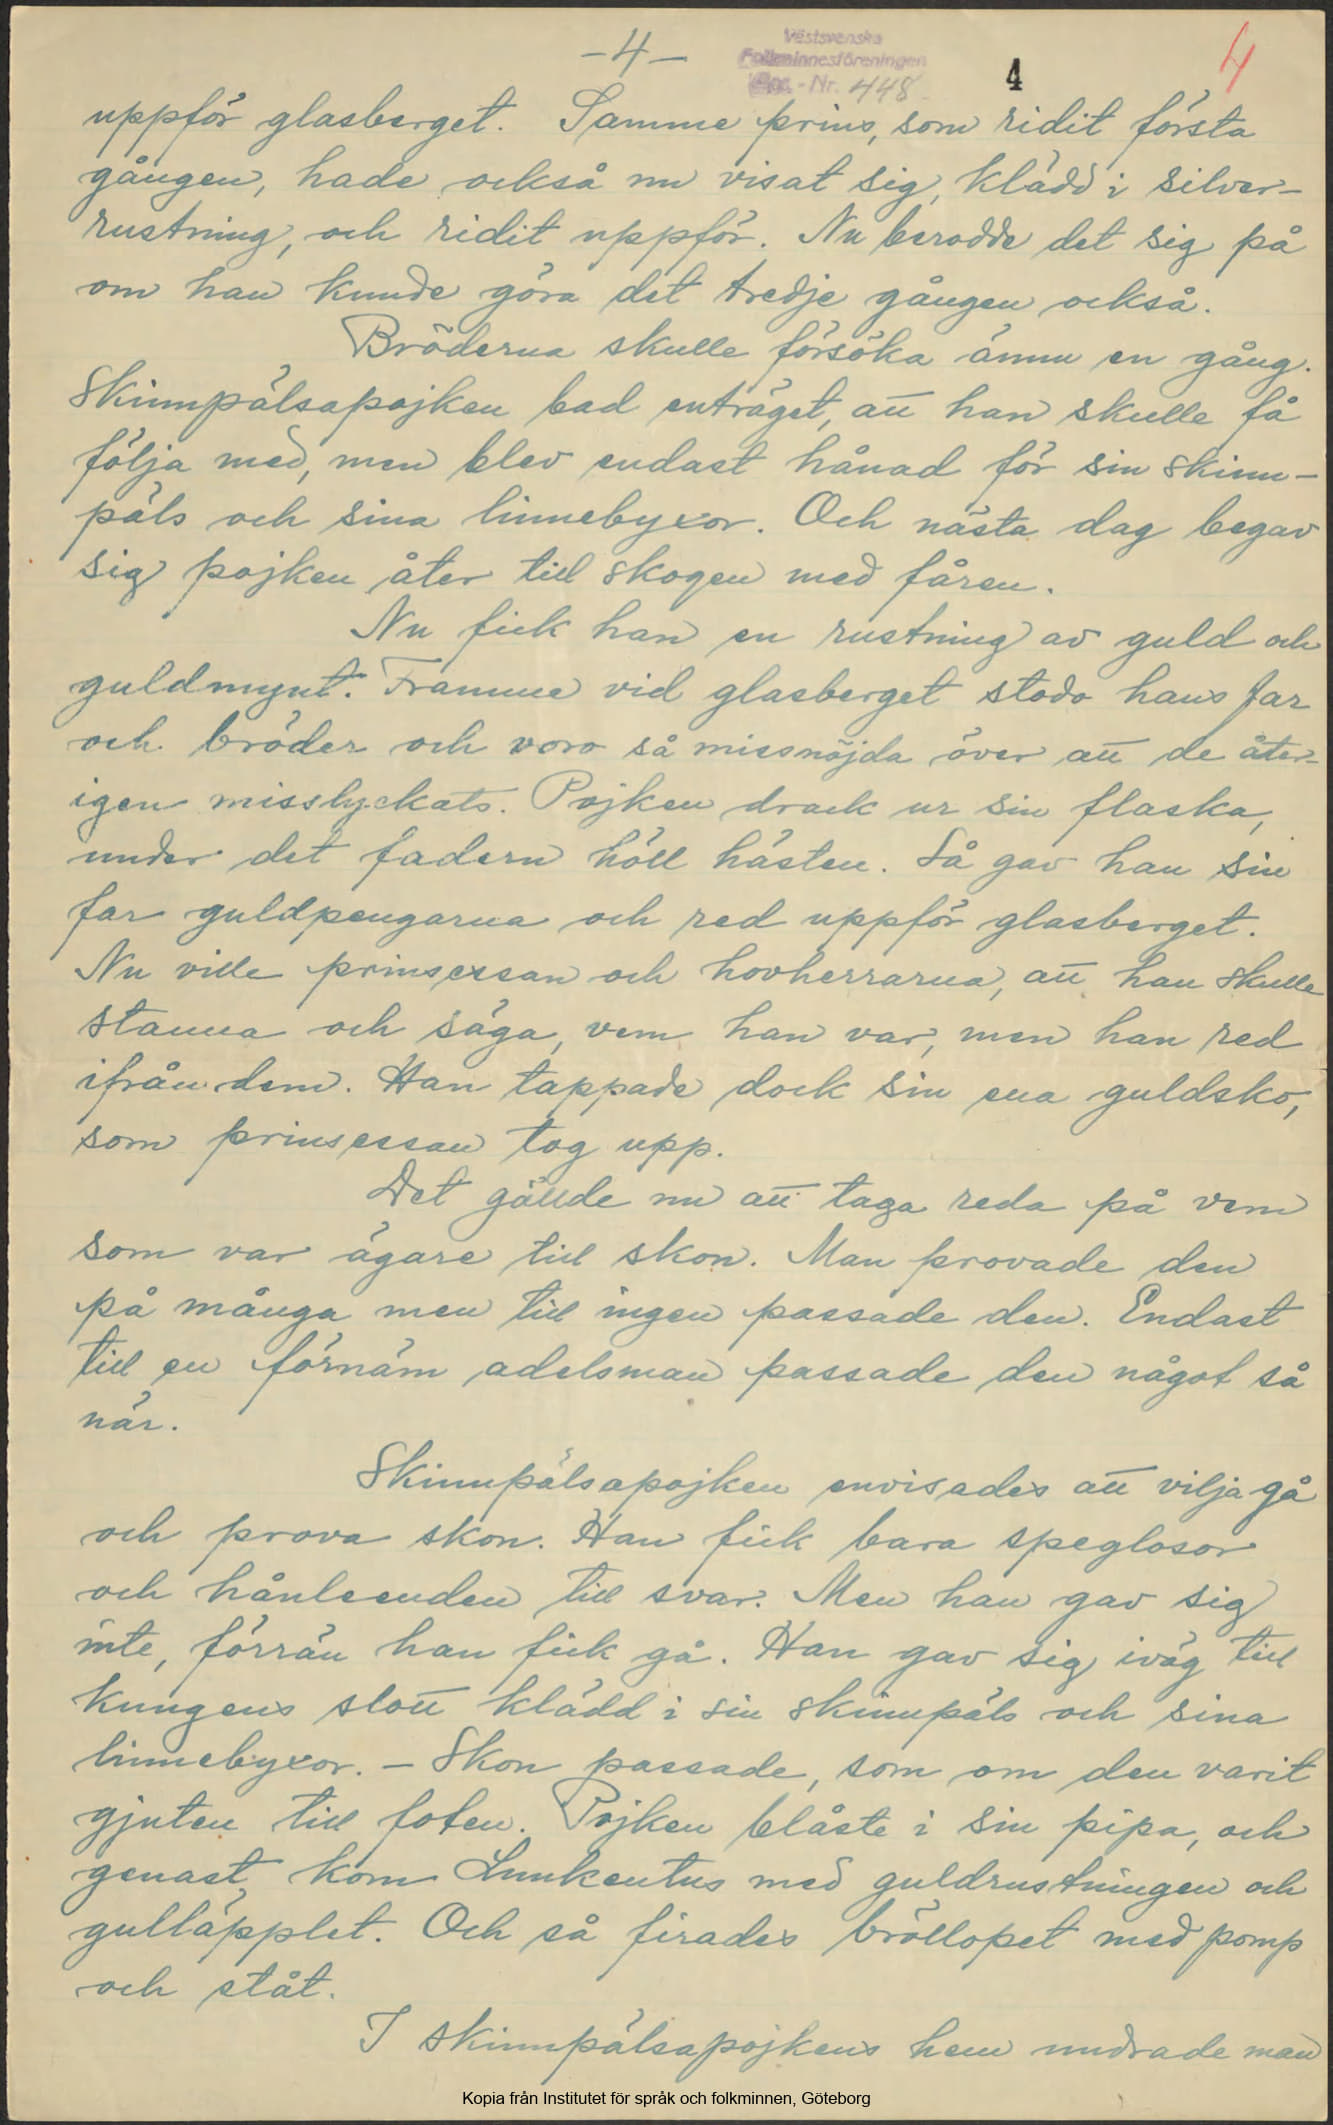 -4-
Västsvenska
Folkminnesföreningen
Acc.-Nr. 448
4
4
uppför glasberget. Samme prins, som ridit första
gången, hade också nu visat sig, klädd i silver-
rustning, och ridit uppför. Nu berodde det sig på
om han kunde göra det tredje gången också.
Bröderna skulle försöka ännu en gång.
Skinnpälsapojken bad enträget, att han skulle få
följa med, men blev endast hånad för sin skinn-
päls och sina linnebyxor. Och nästa dag begav
sig pojken åter till skogen med fåren.
Nu fick han en rustning av guld och
guldmynt. Framme vid glasberget stodo hans far
och bröder och voro så missnöjda över att de åter-
igen misslyckats. Pojken drack ur sin flaska,
under det fadern höll hästen. Så gav han sin
far guldpengarna och red uppför glasberget.
Nu ville prinsessan och hovherrarna, att han skulle
stanna och säga, vem han var, men han red
ifrån dem. Han tappade dock sin ena guldsko,
som prinsessan tog upp.
Det gällde nu att taga reda på vem
som var ägare till skon. Man provade den
på många men till ingen passade den. Endast
till en förnäm adelsman passade den något så
när.
Skinnpälsapojken envisades att vilja gå
och prova skon. Han fick bara speglosor
och hånleenden till svar. Men han gav sig
inte, förrän han fick gå. Han gav sig iväg till
kungens slott klädd i sin skinnpäls och sina
linnebyxor. - Skon passade, som om den varit
gjuten till foten. Pojken blåste i sin pipa, och
genast kom Lunkentus med guldrustningen och
gulläpplet. Och så firades bröllopet med pomp
och ståt.
I skinnpälsapojkens hem undrade man
Kopia från Institutet för språk och folkminnen, Göteborg